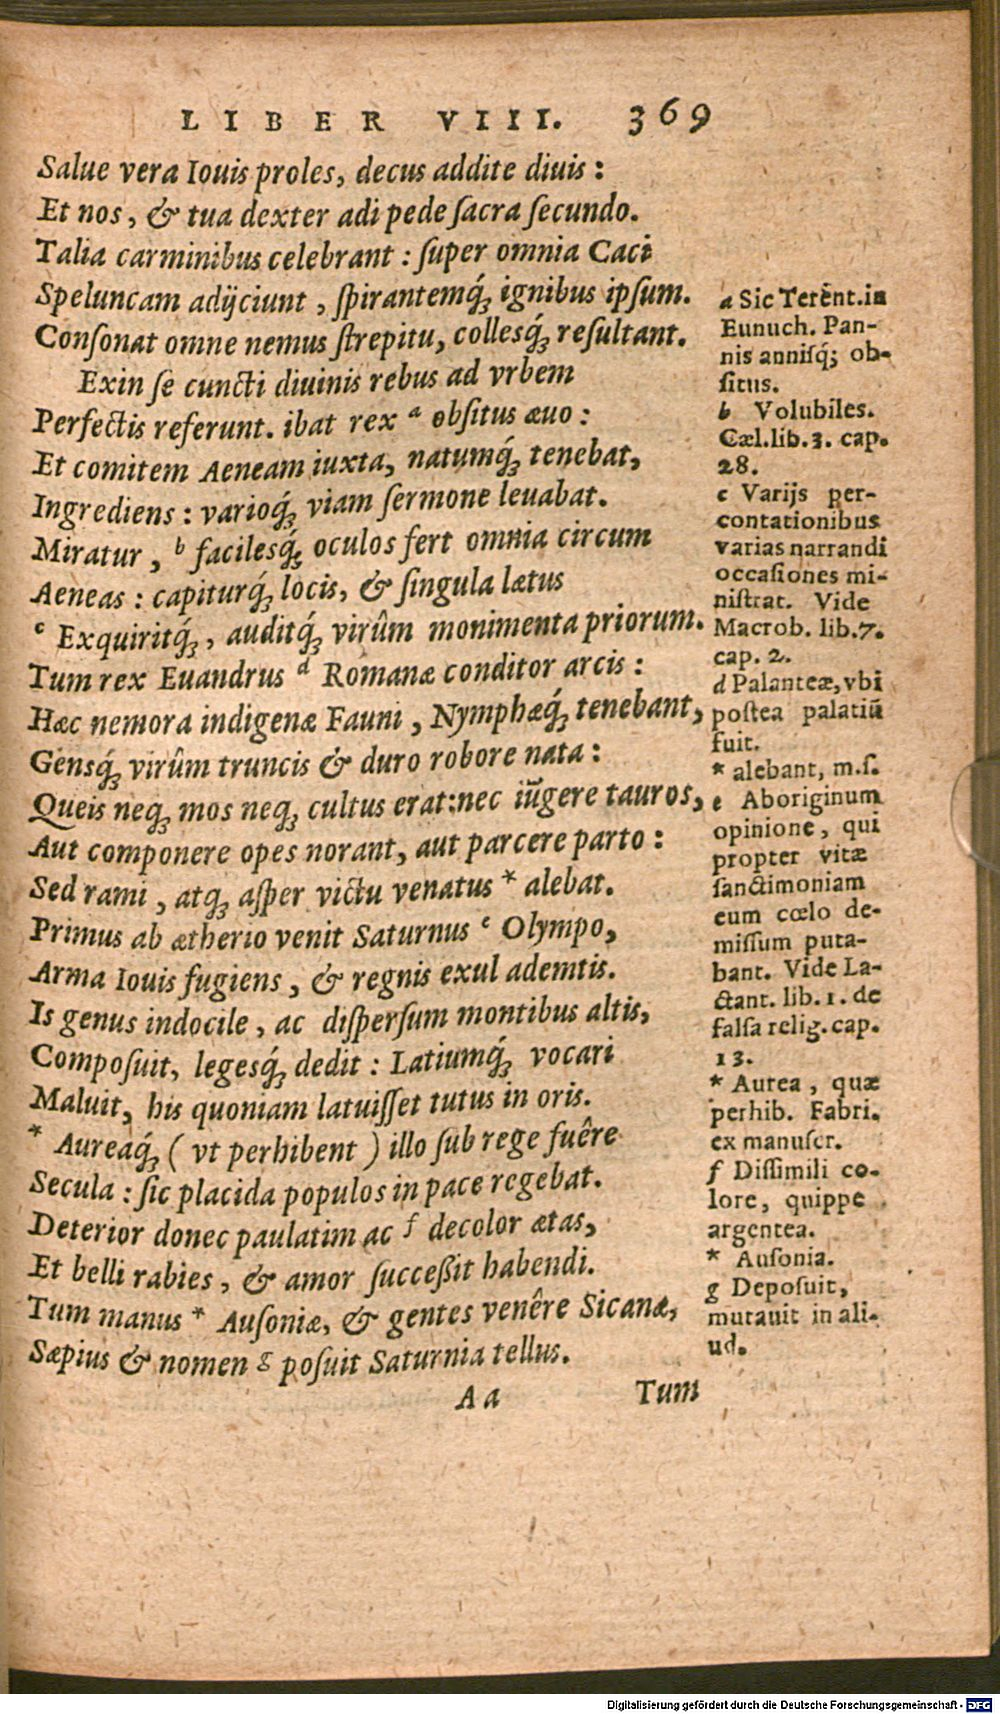 LIBER VIII. 369
Salue vera Iouis proles, decus addite diuis :
Et nos, & tua dexter adi pede ſacra ſecundo.
Talia carminibus celebrant : ſuper omnia Caci
Speluncam adijciunt, ſpirantemq́; ignibus ipſum.
Conſonat omne nemus ſtrepitu, collesq́; reſultant.
Exin ſe cuncti diuinis rebus ad vrbem
Perfectis referunt. ibat rex ª obſitus æuo :
Et comitem Aeneam iuxta, natumq́; tenebat,
Ingrediens : varioq́; viam ſermone leuabat.
Miratur, ᵇ facilesq́; oculos fert omnia circum
Aeneas : capiturq́; locis, & ſingula lætus
ᶜ Exquiritq́;, auditq́; virûm monimenta priorum.
Tum rex Euandrus ᵈ Romanæ conditor arcis :
Hæc nemora indigenæ Fauni, Nymphæq́; tenebant,
Gensq́; virûm truncis & duro robore nata :
Queis neq; mos neq; cultus erat:nec iūgere tauros,
Aut componere opes norant, aut parcere parto :
Sed rami, atq; aſper victu venatus * alebat.
Primus ab ætherio venit Saturnus ᵉ Olympo,
Arma Iouis fugiens, & regnis exul ademtis.
Is genus indocile, ac diſperſum montibus altis,
Compoſuit, legesq́; dedit : Latiumq́; vocari
Maluit, his quoniam latuiſſet tutus in oris.
* Aureaq́; ( vt perhibent ) illo ſub rege fuêre
Secula : ſic placida populos in pace regebat.
Deterior donec paulatim ac ᶠ decolor ætas,
Et belli rabies, & amor ſucceßit habendi.
Tum manus * Auſoniæ, & gentes venêre Sicanæ,
Sæpius & nomen ᵍ poſuit Saturnia tellus.
Aa Tum
a Sic Terent.in
Eunuch. Pan-
nis annisq́; ob-
ſitus.
b Volubiles.
Cæl.lib.3. cap.
28.
c Varijs per-
contationibus
varias narrandi
occaſiones mi-
niſtrat. Vide
Macrob. lib.7.
cap. 2.
d Palanteæ, vbi
poſtea palatiū
fuit.
* alebant, m.ſ.
e Aboriginum
opinione, qui
propter vitæ
ſanctimoniam
eum cœlo de-
miſſum puta-
bant. Vide La-
ctant. lib.1. de
falſa relig. cap.
13.
* Aurea, quæ
perhib. Fabri.
ex manuſcr.
f Diſſimili co-
lore, quippe
argentea.
* Auſonia.
g Depoſuit,
mutauit in ali-
ud.
Digitalisierung gefördert durch die Deutsche Forschungsgemeinschaft - DFG